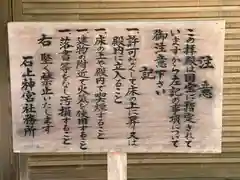 注意
この拝殿は国宝に指定されて
いますから左記の事項について
御注意下さい
記
一、許可なくして床の上に昇り又は
殿内に立入ること
一、床の上や殿内で喫煙すること
一、建物の附近で火気を使用すること
一、落書等をもらし汚損すること
右 堅く禁止いたします
石上神宮社務所